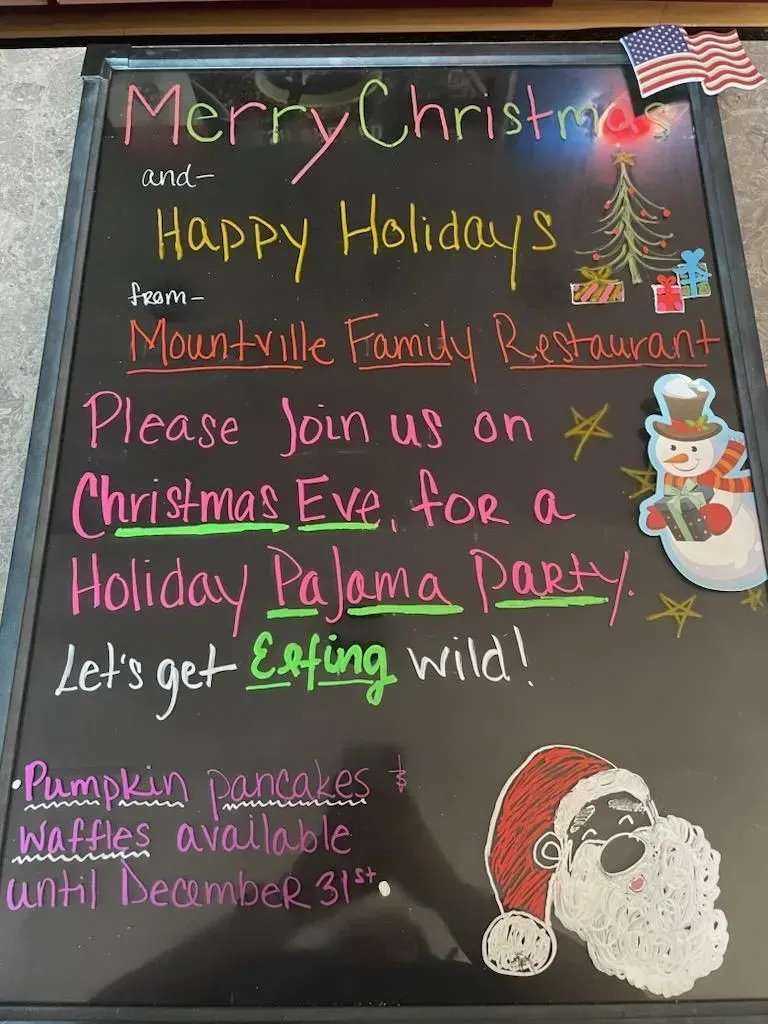 Merry Christmas
and-
Happy Holidays
from-
Mountville Family Restaurant
Please Join us on
Christmas Eve, for a
Holiday Pajama Party.
Let's get Elfing wild!
•Pumpkin pancakes &
Waffles available
until December 31st.